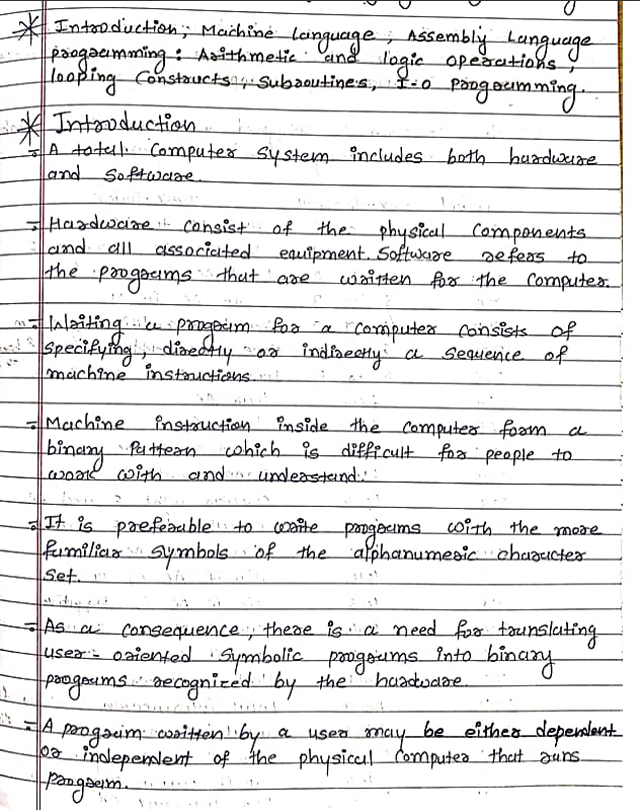 * Introduction; Machine language, Assembly Language
programming: Arithmetic and logic operations,
looping Constructs, Subroutines, I-O Programming.
* Introduction
- A total Computer System includes both hardware
and Software.
- Hardware consist of the physical Components
and all associated equipment. Software refers to
the programs that are written for the Computer.
- Writing a program for a computer consists of
specifying, directly or indirectly a sequence of
machine instructions.
- Machine instruction inside the computer form a
binary Pattern which is difficult for people to
work with and understand.
- It is preferable to write programs with the more
familiar symbols of the alphanumeric character
set.
- As a consequence, there is a need for translating
user-oriented Symbolic programs into binary
programs recognized by the hardware.
- A program written by a user may be either dependent
or independent of the physical Computer that runs
program.